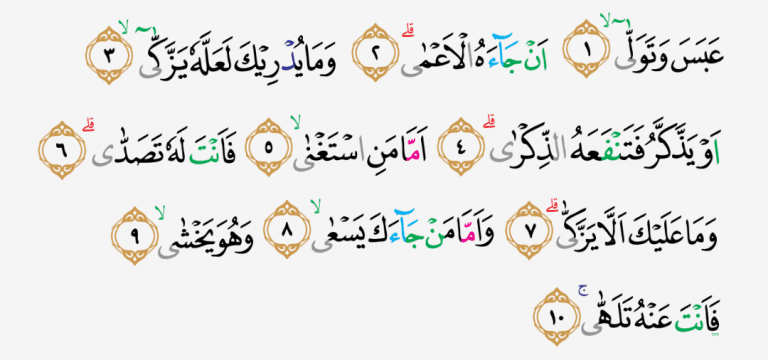 عَبَسَ وَتَوَلّٰىٓۙ ١ اَنْ جَاۤءَهُ الْاَعْمٰىۗ ٢ وَمَا يُدْرِيْكَ لَعَلَّهٗ يَزَّكّٰىٓۙ ٣
اَوْ يَذَّكَّرُ فَتَنْفَعَهُ الذِّكْرٰىۗ ٤ اَمَّا مَنِ اسْتَغْنٰىۙ ٥ فَاَنْتَ لَهٗ تَصَدّٰىۗ ٦
وَمَا عَلَيْكَ اَلَّا يَزَّكّٰىۗ ٧ وَاَمَّا مَنْ جَاۤءَكَ يَسْعٰىۙ ٨ وَهُوَ يَخْشٰىۙ ٩
فَاَنْتَ عَنْهُ تَلَهّٰىۚ ١٠